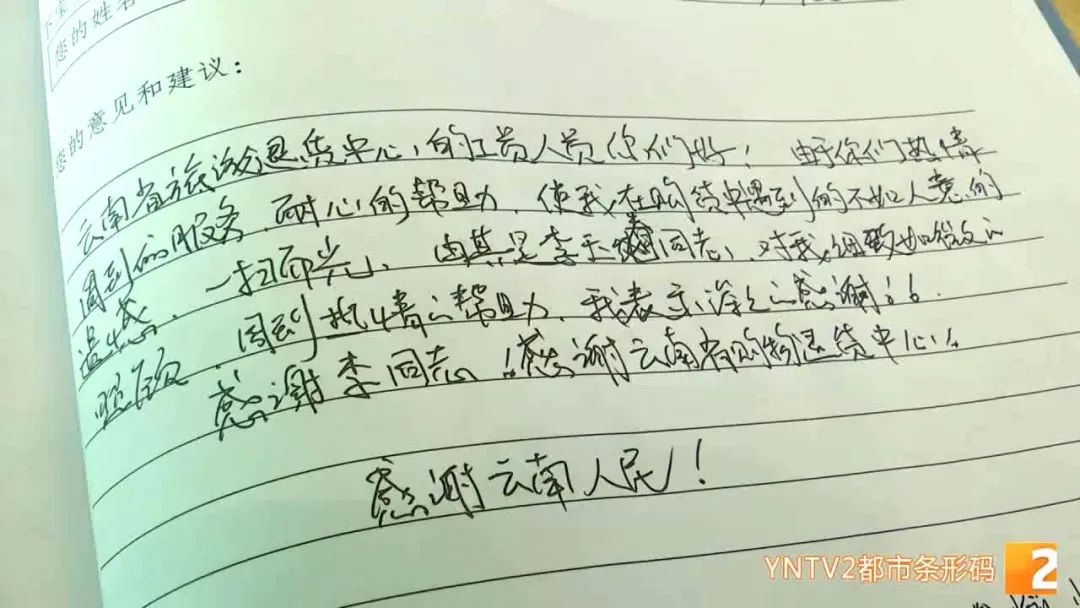 您的姓名
您的意见和建议：
云南省旅游退货中心，的工员人员你们好！由于你们热情
周到的服务，耐心的帮助，使我在购货中遇到的不如人意的
遗憾，一扫而光，由其是李玉同志，对我细致如微的
照顾，周到热情的帮助，我表示深之的感谢！
感谢李同志！感谢云南省购物退货中心！
感谢云南人民！
YNTV2都市条形码 2